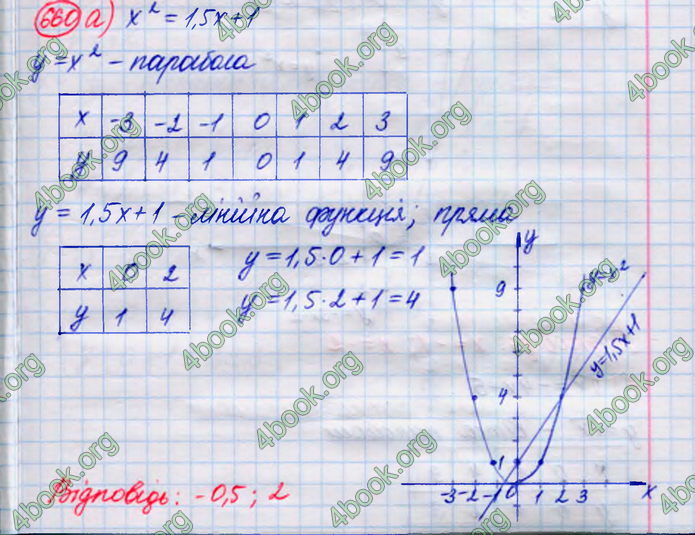 660 а) x² = 1,5x+1
y = x² - парабола
x -3 -2 -1 0 1 2 3
y 9 4 1 0 1 4 9
y = 1,5x+1 - лінійна функція; пряма
x 0 2
y 1 4
y = 1,5·0+1 = 1
y = 1,5·2+1 = 4
y
9
4
1
y=1,5x+1
-3 -2 -1 0 1 2 3 x
Відповідь: -0,5; 2
4book.org